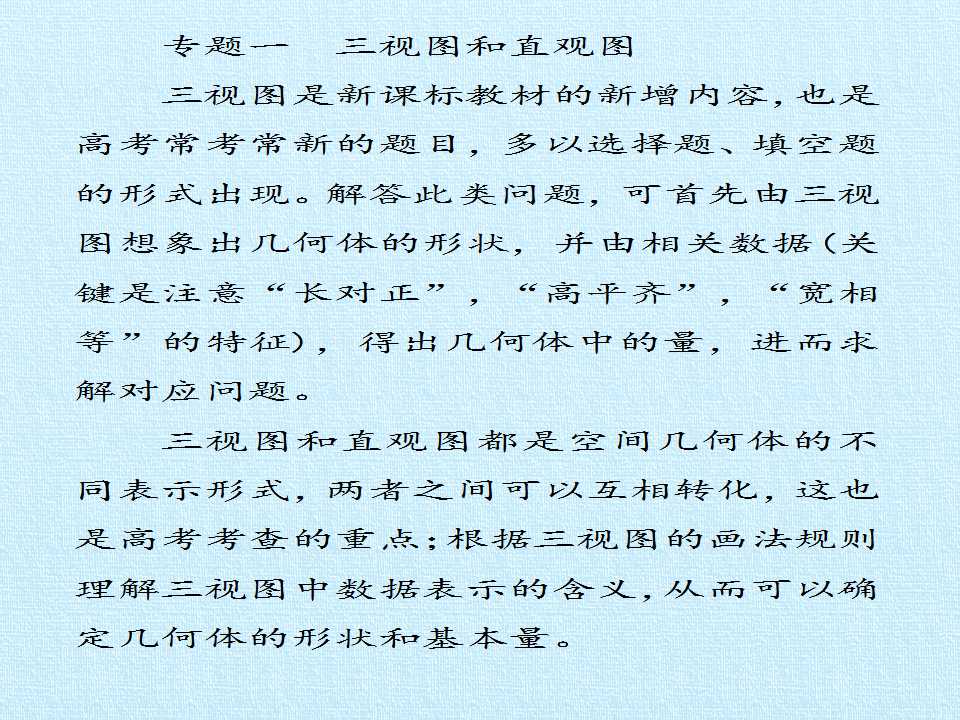 专题一　三视图和直观图
三视图是新课标教材的新增内容,也是
高考常考常新的题目，多以选择题、填空题
的形式出现。解答此类问题，可首先由三视
图想象出几何体的形状，并由相关数据(关
键是注意“长对正”，“高平齐”，“宽相
等”的特征)，得出几何体中的量，进而求
解对应问题。
三视图和直观图都是空间几何体的不
同表示形式，两者之间可以互相转化，这也
是高考考查的重点;根据三视图的画法规则
理解三视图中数据表示的含义,从而可以确
定几何体的形状和基本量。